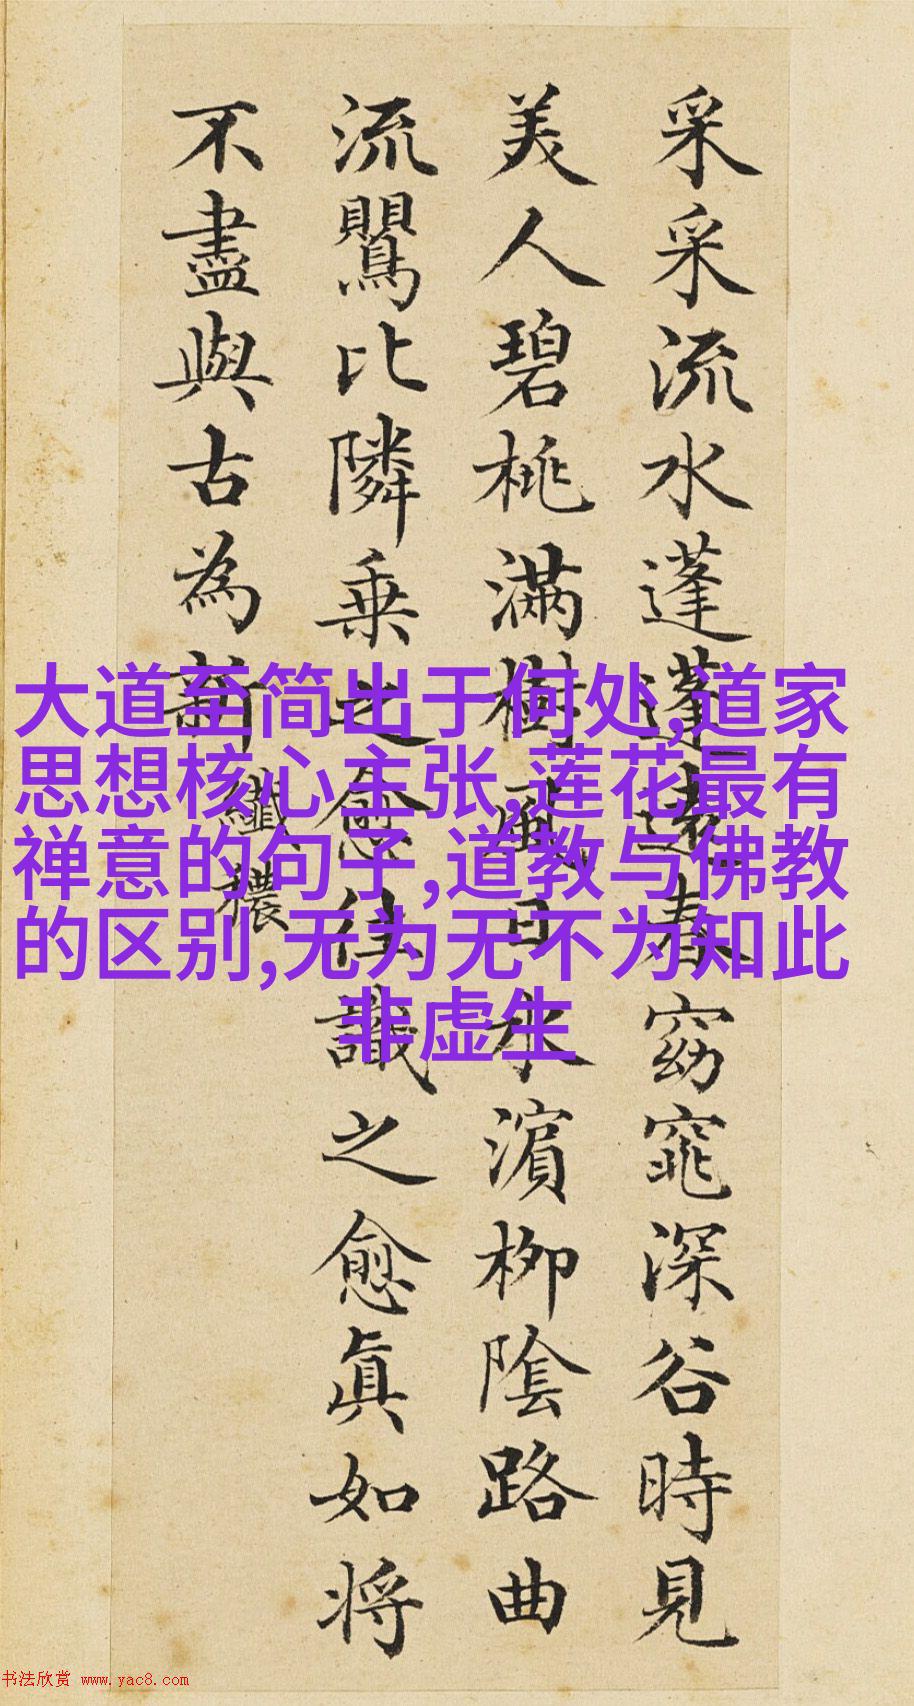 采采流水蓬蓬遠春窈窕深谷時見
美人碧桃滿樹風日水濵柳隂路曲
流鸎比隣乗之愈往識之愈眞如将
不盡與古為新 纖穠
大道至简出于何处,道家
思想核心主张,莲花最有
禅意的句子,道教与佛教
的区别,无为无不为知此
非虚生
书法欣赏 www.yac8.com